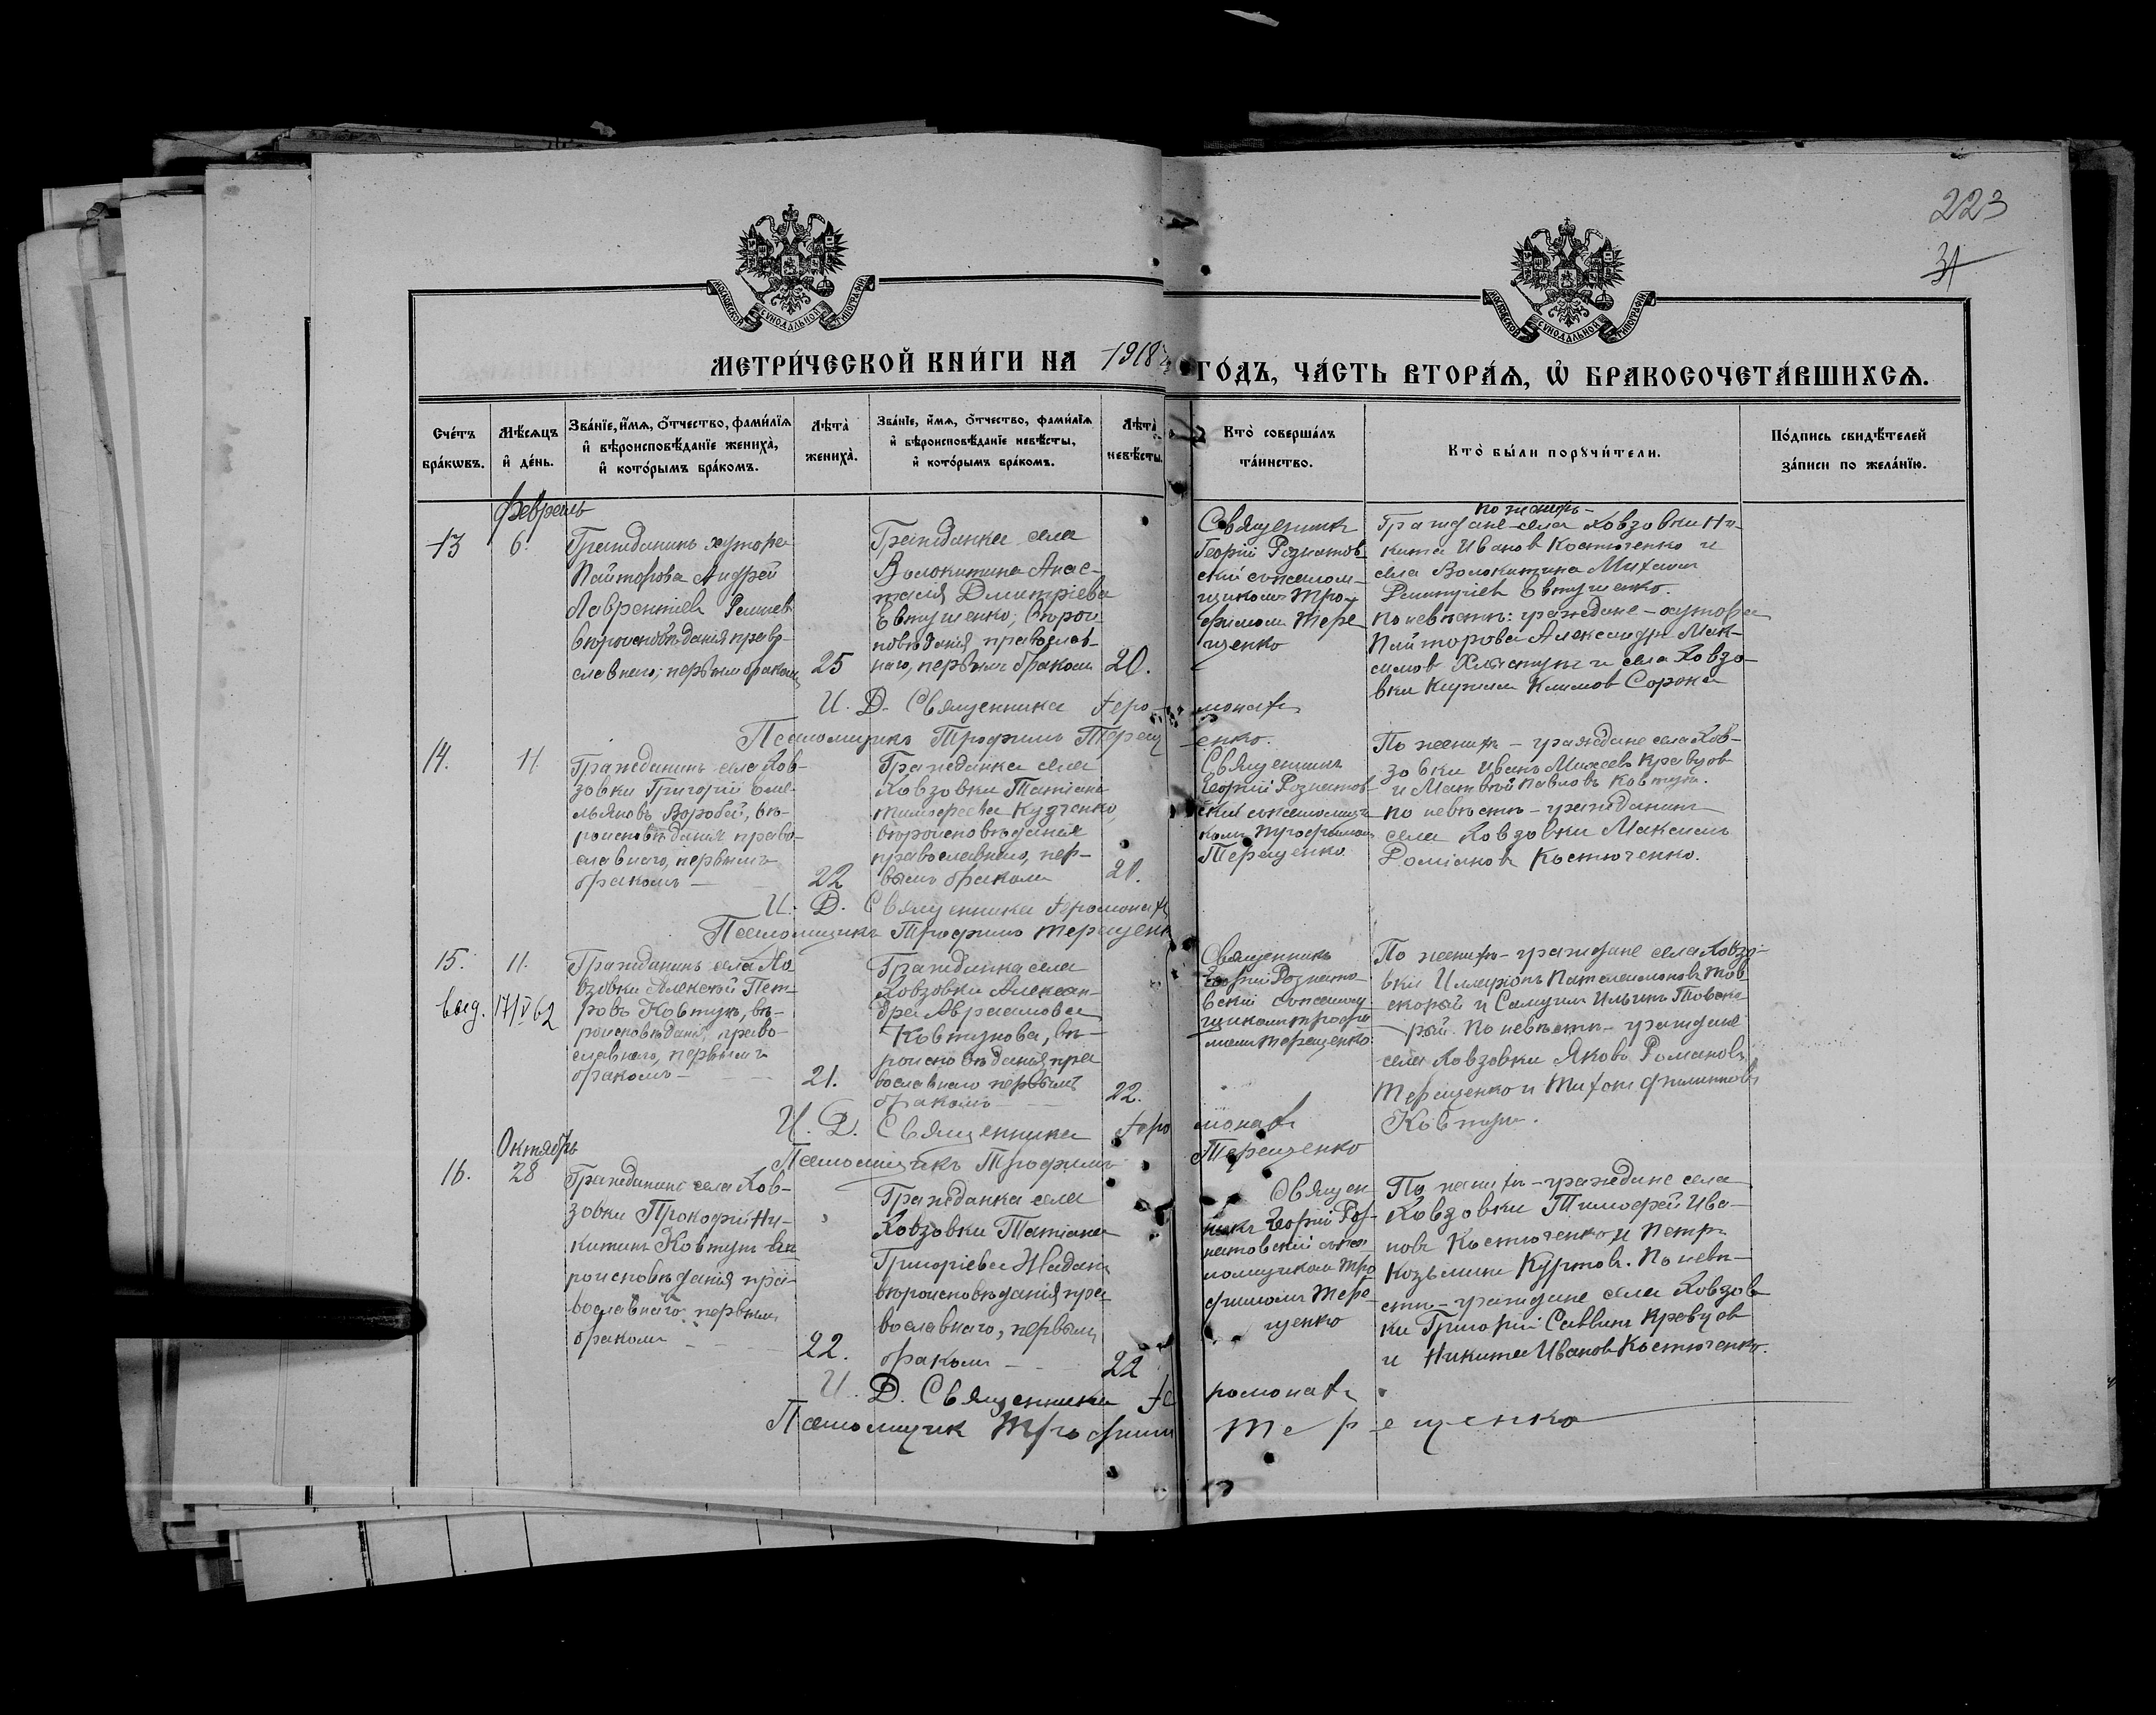 223
31
МОСКОВСКОЙ СУНОДАЛЬНОЙ ТИПОГРАФІИ
МОСКОВСКОЙ СУНОДАЛЬНОЙ ТИПОГРАФІИ
МЕТРИ́ЧЕСКОЙ КНИ́ГИ НА 1918 ГО́ДЪ, ЧА́СТЬ ВТОРА́Я, Ѽ БРАКОСОЧЕТА́ВШИХСЯ.
Сче́тъ бра́кѡвъ.
Мѣ́сяцъ и҆ де́нь.
Зва́нїе, и҆́мя, ѻ҆́тчество, фами́лїя
и҆ вѣроисповѣ́данїе жениха̀,
и҆ кото́рымъ бра́комъ.
Лѣта̀ жениха̀.
Зва́нїе, и҆́мя, ѻ҆́тчество, фами́лїя
и҆ вѣроисповѣ́данїе невѣ́сты,
и҆ кото́рымъ бра́комъ.
Лѣта̀ невѣ́сты.
Кто̀ соверша́лъ
та́инство.
Кто̀ бы́ли порꙋчи́тели.
По́дпись свидѣ́телей
за́писи по жела́нїю.
Февраль
13
6.
Гражданинъ хутора
Андрей
Лаврентіев
вѣроисповѣданія право-
славнаго, первымъ бракомъ
25
Гражданка села
Волокитина Анас-
тасія Дмитріева
Евтушенко, вѣроис-
повѣданія православ-
наго, первымъ бракомъ
20.
Священник
Георгій Рознатов-
скій с псалом-
щиком Тро-
фимом Тере
щенко
По жениху-
Граждане села Ховзовки Ни-
кита Иванов Костюченко и
села Волокитина Михаил
Евтушенко.
По невѣстѣ: граждане - хутора
Александр Мак-
симов и села Ховзо-
вки Климов Сорока
И. Д. Священника Іеромонах
Псаломщикъ Трофим Терещенко.
14.
11
Гражданинъ села Хов-
зовки Григорій Оме-
льяновъ Воробей, вѣ-
роисповѣданія право-
славнаго, первымъ
бракомъ
22
Гражданка села
Ховзовки Татіана
Тимофеева Кудченко
вѣроисповѣданія
православнаго, пер-
вымъ бракомъ
21.
Священникъ
Георгій Рознатов-
скій с псаломщи-
комъ Трофимом
Терещенко
По жениху - граждане села Хов-
зовки Иванъ Михеевъ Кравцов
и Матвей Павловъ Ковтун.
По невѣстѣ - гражданинъ
села Ховзовки Максимъ
Костюченко.
И. Д. Священника Іеромонах
Псаломщикъ Трофимъ Терещенк
15.
11.
выд. 17/V 62
Гражданинъ села Хо
взовки Алексей Пет-
ровъ Ковтун, вѣ-
роисповѣданія право-
славнаго, первымъ
бракомъ
21.
Гражданка села
Ховзовки Алексан-
дра Авраамова
Ковтунова, вѣ-
роисповѣданія пра
вославнаго первымъ
бракомъ
22.
Священникъ
Георгій Рознато-
вскій с псалом
щиком Трофи
мом Терещенко
По жениху - граждане села Ховзо-
вки
и Ильинъ
По невѣстѣ - граждане
села Ховзовки Яковъ Романовъ
Терещенко и Тихон Филиппов
Ковтун.
И. Д. Священника Іеромонах
Псаломщикъ Трофимъ Терещенко
Октябрь
16.
28
Гражданинъ села Хов-
зовки Прокофій Ни-
китинъ Ковтун вѣ
роисповѣданія пра-
вославнаго первым
браком
22.
Гражданка села
Ховзовки Татіана
Григоріева
вѣроисповѣданія пра
вославнаго, первым
браком
22
Священ
никъ Георгій Роз-
натовскій с пса-
ломщиком Тро
фимом Тере
щенко
По жениху - граждане села
Ховзовки Тимофей Ива-
нов Костюченко и Петръ
Козьмин Куртов. По невѣ-
стѣ - граждане села Ховзов
ки Григорій Саввин Кравцов
и Никита Иванов Костюченко.
И. Д. Священника Іеромонах
Псаломщик Трофим Терещенко